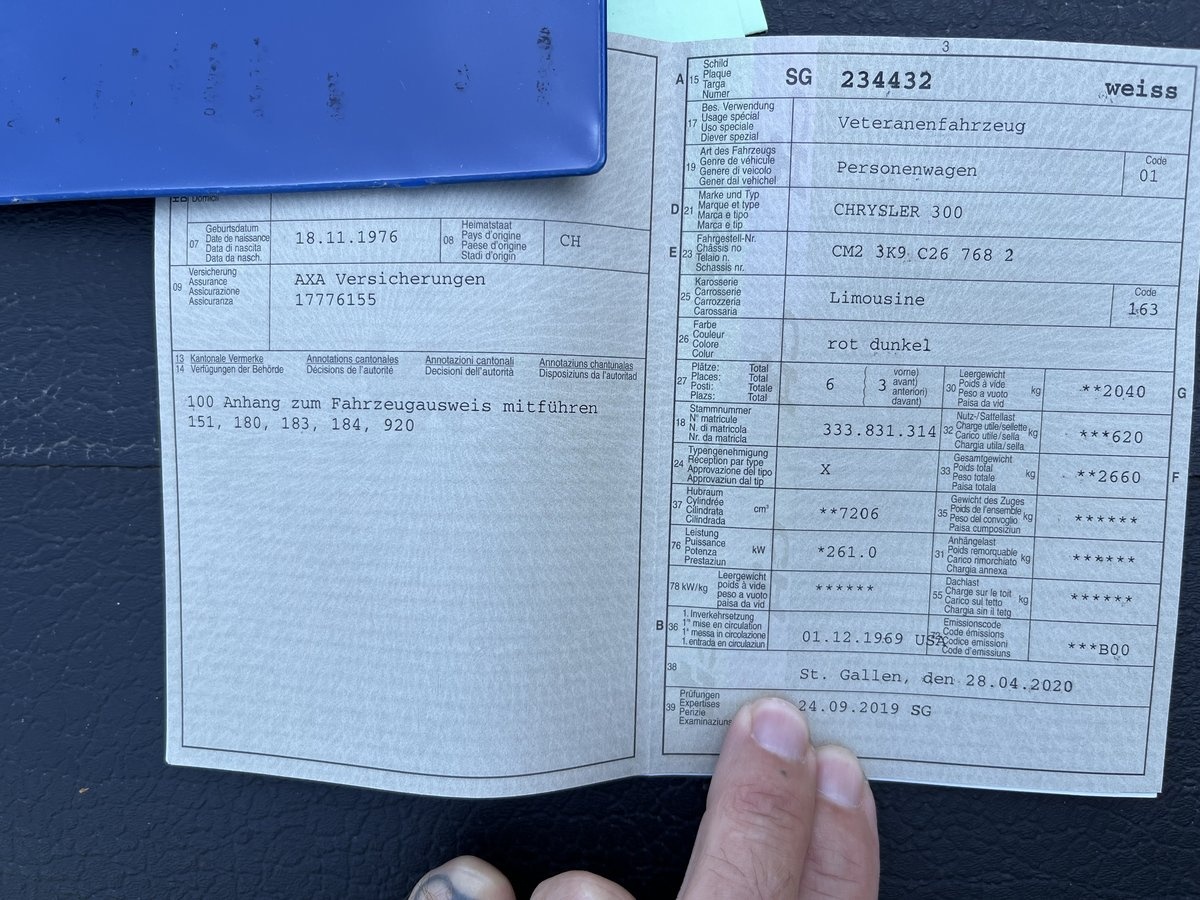 Domicil
07 Geburtsdatum
Date de naissance
Data di nascita
Data da nasch.
18.11.1976
08 Heimatstaat
Pays d'origine
Paese d'origine
Stadi d'origin
CH
09 Versicherung
Assurance
Assicurazione
Assicuranza
AXA Versicherungen
17776155
13 Kantonale Vermerke Annotations cantonales Annotazioni cantonali Annotaziuns chantunalas
14 Verfügungen der Behörde Décisions de l'autorité Decisioni dell'autorità Disposiziuns da l'autoritad
100 Anhang zum Fahrzeugausweis mitführen
151, 180, 183, 184, 920
3
A 15 Schild
Plaque
Targa
Numer
SG 234432 weiss
17 Bes. Verwendung
Usage spécial
Uso speciale
Diever spezial
Veteranenfahrzeug
19 Art des Fahrzeugs
Genre de véhicule
Genere di veicolo
Gener dal vehichel
Personenwagen
Code
01
D 21 Marke und Typ
Marque et type
Marca e tipo
Marca e tip
CHRYSLER 300
E 23 Fahrgestell-Nr.
Châssis no
Telaio n.
Schassis nr.
CM2 3K9 C26 768 2
25 Karosserie
Carrosserie
Carrozzeria
Carossaria
Limousine
Code
163
26 Farbe
Couleur
Colore
Colur
rot dunkel
27 Plätze: Total
Places: Total
Posti: Totale
Plazs: Total
6 3 vorne)
avant)
anteriori)
davant)
30 Leergewicht
Poids à vide
Peso a vuoto
Paisa da vid
kg
**2040 G
18 Stammnummer
N° matricule
N. di matricola
Nr. da matricla
333.831.314
32 Nutz-/Sattellast
Charge utile/sellette
Carico utile/sella
Chargia utila/sella
kg
***620
24 Typengenehmigung
Réception par type
Approvazione del tipo
Approvaziun dal tip
X
33 Gesamtgewicht
Poids total
Peso totale
Paisa totala
kg
**2660 F
37 Hubraum
Cylindrée
Cilindrata
Cilindrada
cm³
**7206
35 Gewicht des Zuges
Poids de l'ensemble
Peso del convoglio
Paisa cumposiziun
kg
******
76 Leistung
Puissance
Potenza
Prestaziun
kW
*261.0
31 Anhängelast
Poids remorquable
Carico rimorchiato
Chargia annexa
kg
******
78 kW/kg Leergewicht
poids à vide
peso a vuoto
paisa da vid
******
55 Dachlast
Charge sur le toit
Carico sul tetto
Chargia sin il tetg
kg
******
B 36 1. Inverkehrsetzung
1re mise en circulation
1a messa in circolazione
1. entrada en circulaziun
01.12.1969 USA
72 Emissionscode
Code émissions
Codice emissioni
Code d'emissiuns
***B00
38 St. Gallen, den 28.04.2020
39 Prüfungen
Expertises
Perizie
Examinaziuns
24.09.2019 SG